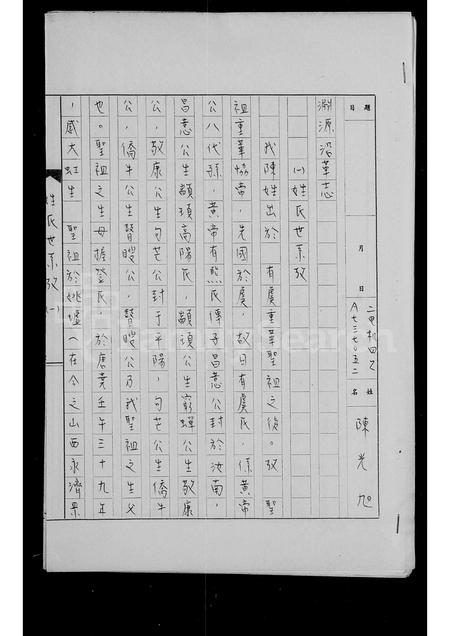 題目
月 日
二電機四乙
A七三七〇五二
姓名
陳光旭
溯源沿革志
(一)姓氏世系攷
我陳姓出於 有虞重華聖祖之後。攷 聖
祖重華協帝,先國於虞,故曰有虞氏,係黃帝
公八代孫,黃帝有熊氏傳子昌意公封於汝南,
昌意公生顓頊高陽氏,顓頊公生窮蟬公生敬康
公,敬康公生句芒公封于平陽,句芒公生僑牛
公,僑牛公生瞽瞍公,瞽瞍公乃我聖祖之生父
也。聖祖之生母握登氏,於唐堯壬午三十九年
,感大虹生 聖祖於姚墟(在今之山西永濟縣
姓氏世系攷(一)